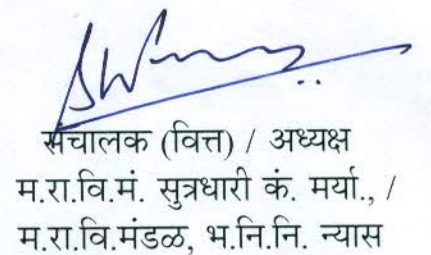 संचालक (वित्त) / अध्यक्ष
म.रा.वि.मं. सुत्रधारी कं. मर्या., /
म.रा.वि.मंडळ, भ.नि.नि. न्यास